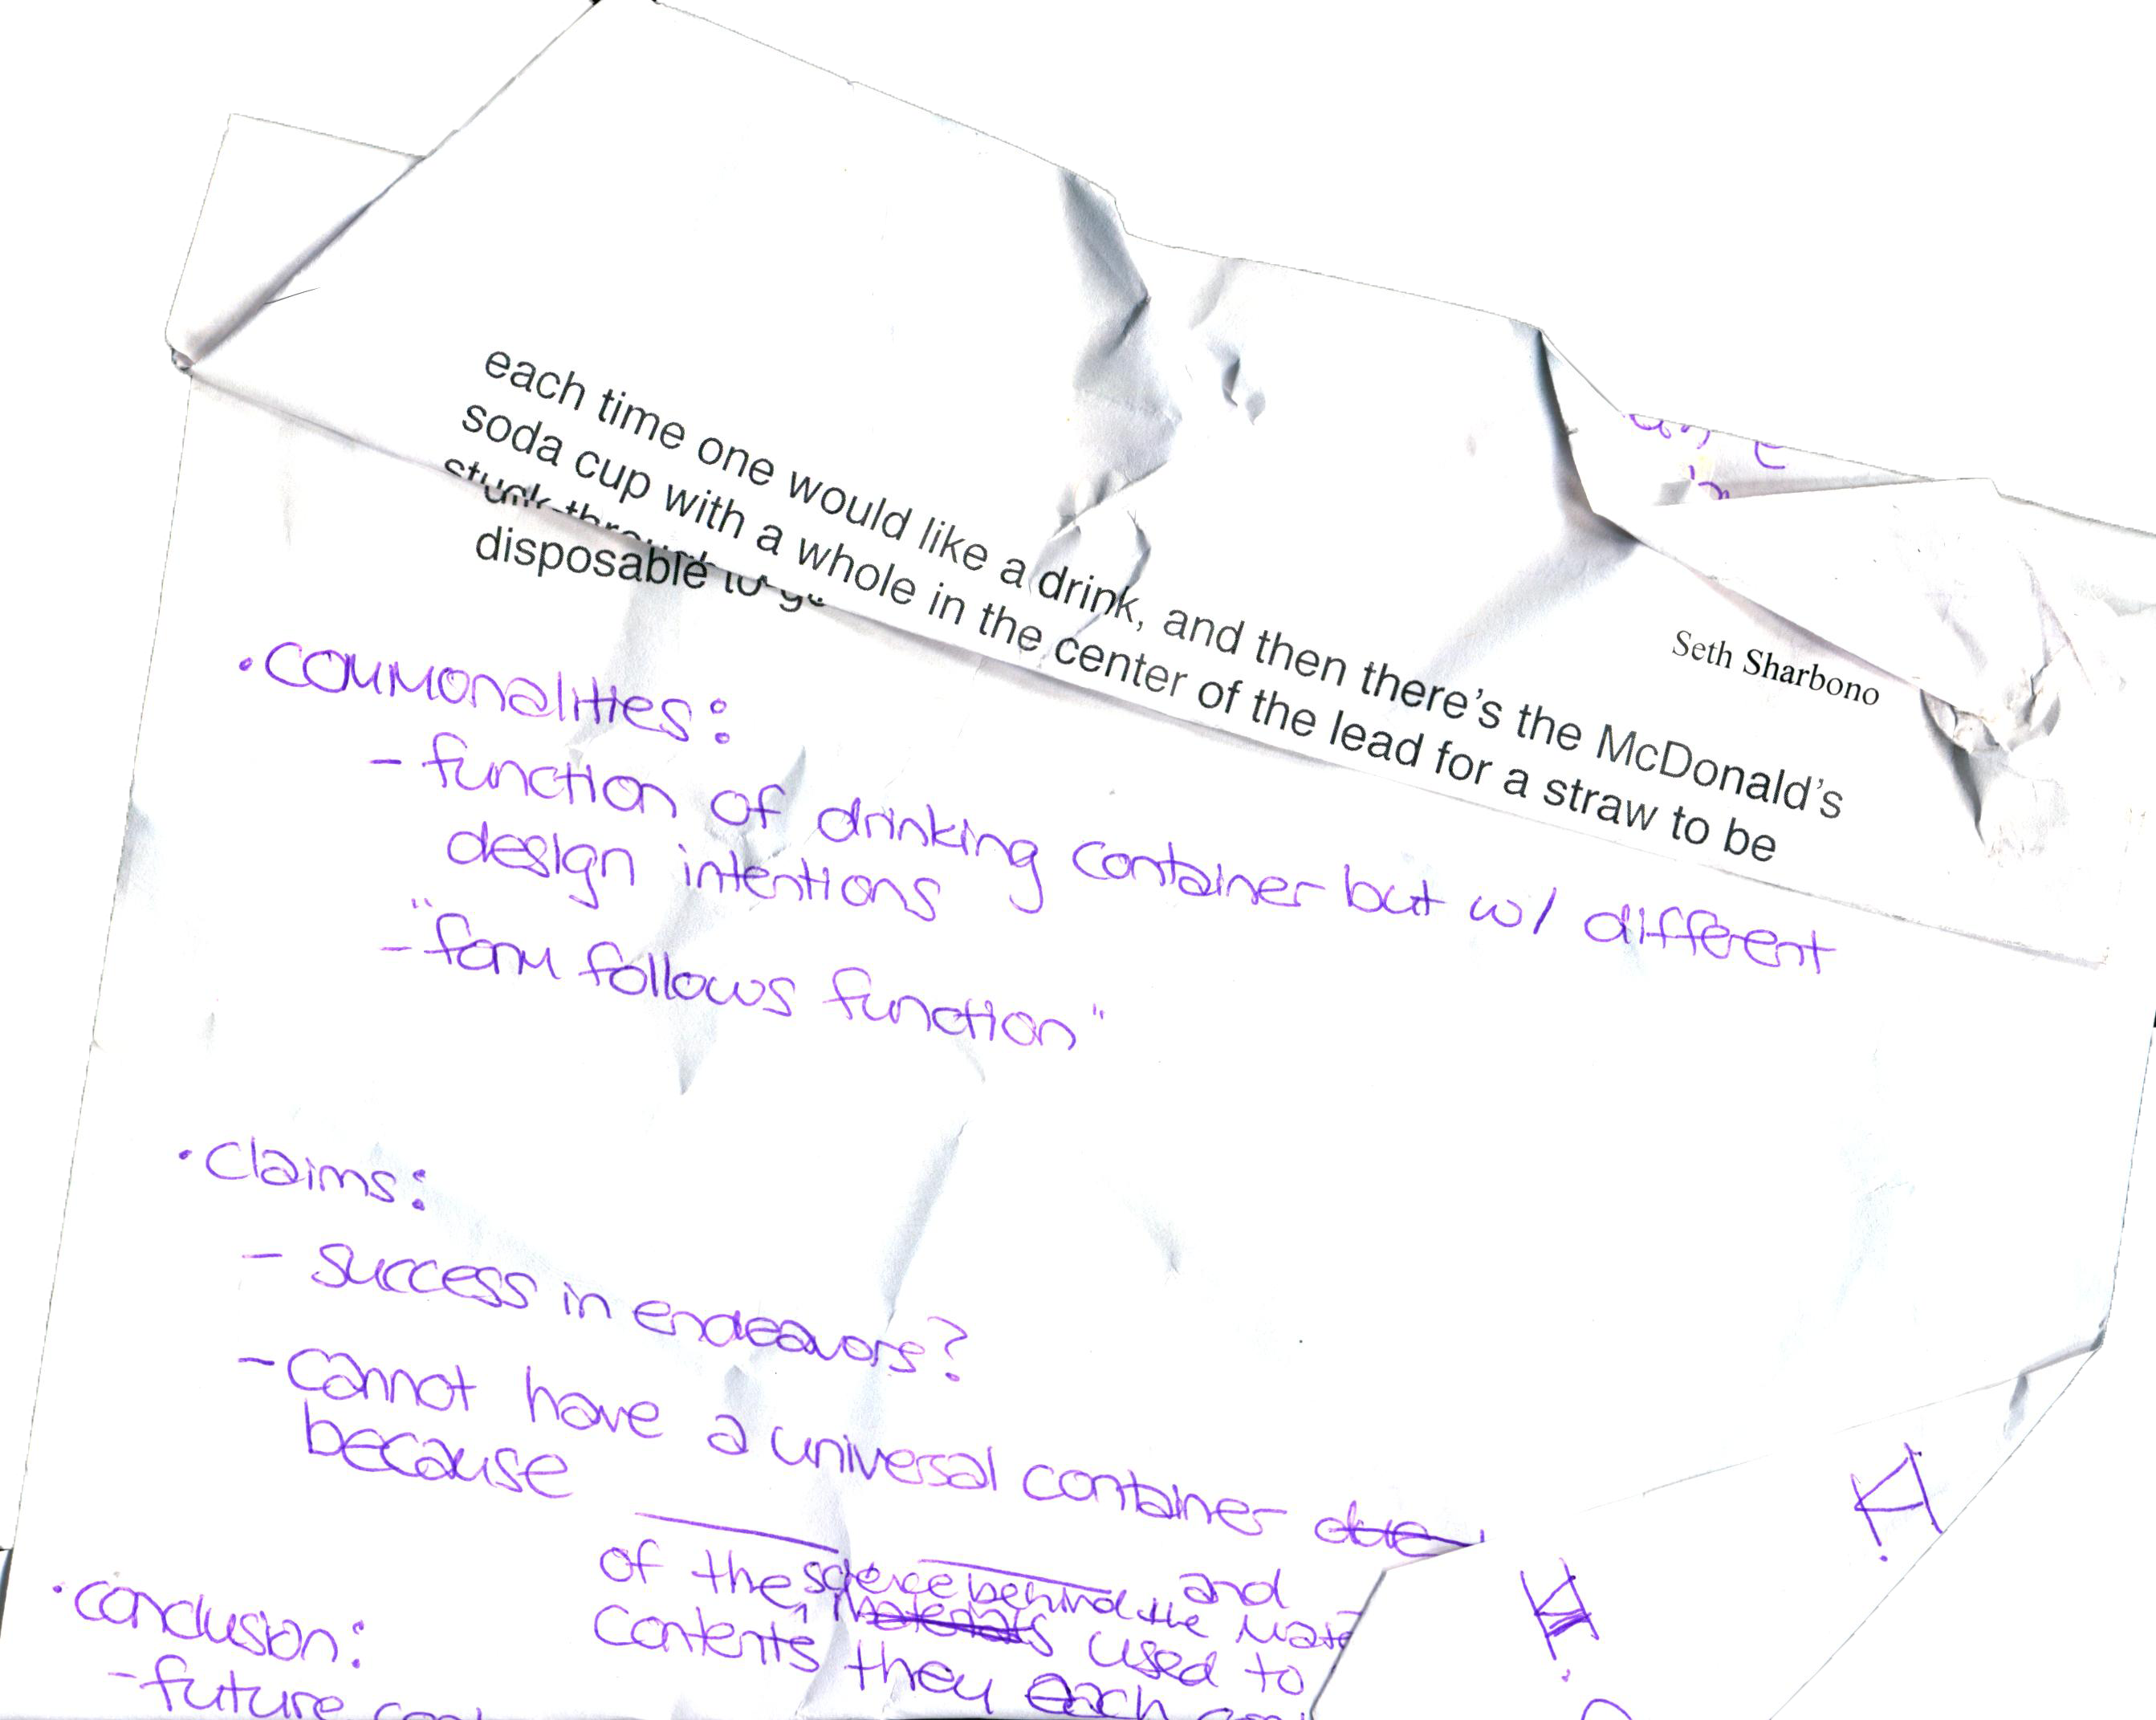 each time one would like a drink, and then there's the McDonald's
soda cup with a whole in the center of the lead for a straw to be
stuck through
disposable to go
Seth Sharbono
• commonalities:
- function of drinking container but w/ different
design intentions
- "form follows function"
• Claims:
- success in endeavors?
- cannot have a universal container due
because
of the science behind the and
materials used to
contents they each
• conclusion:
- future
VI.
VII.